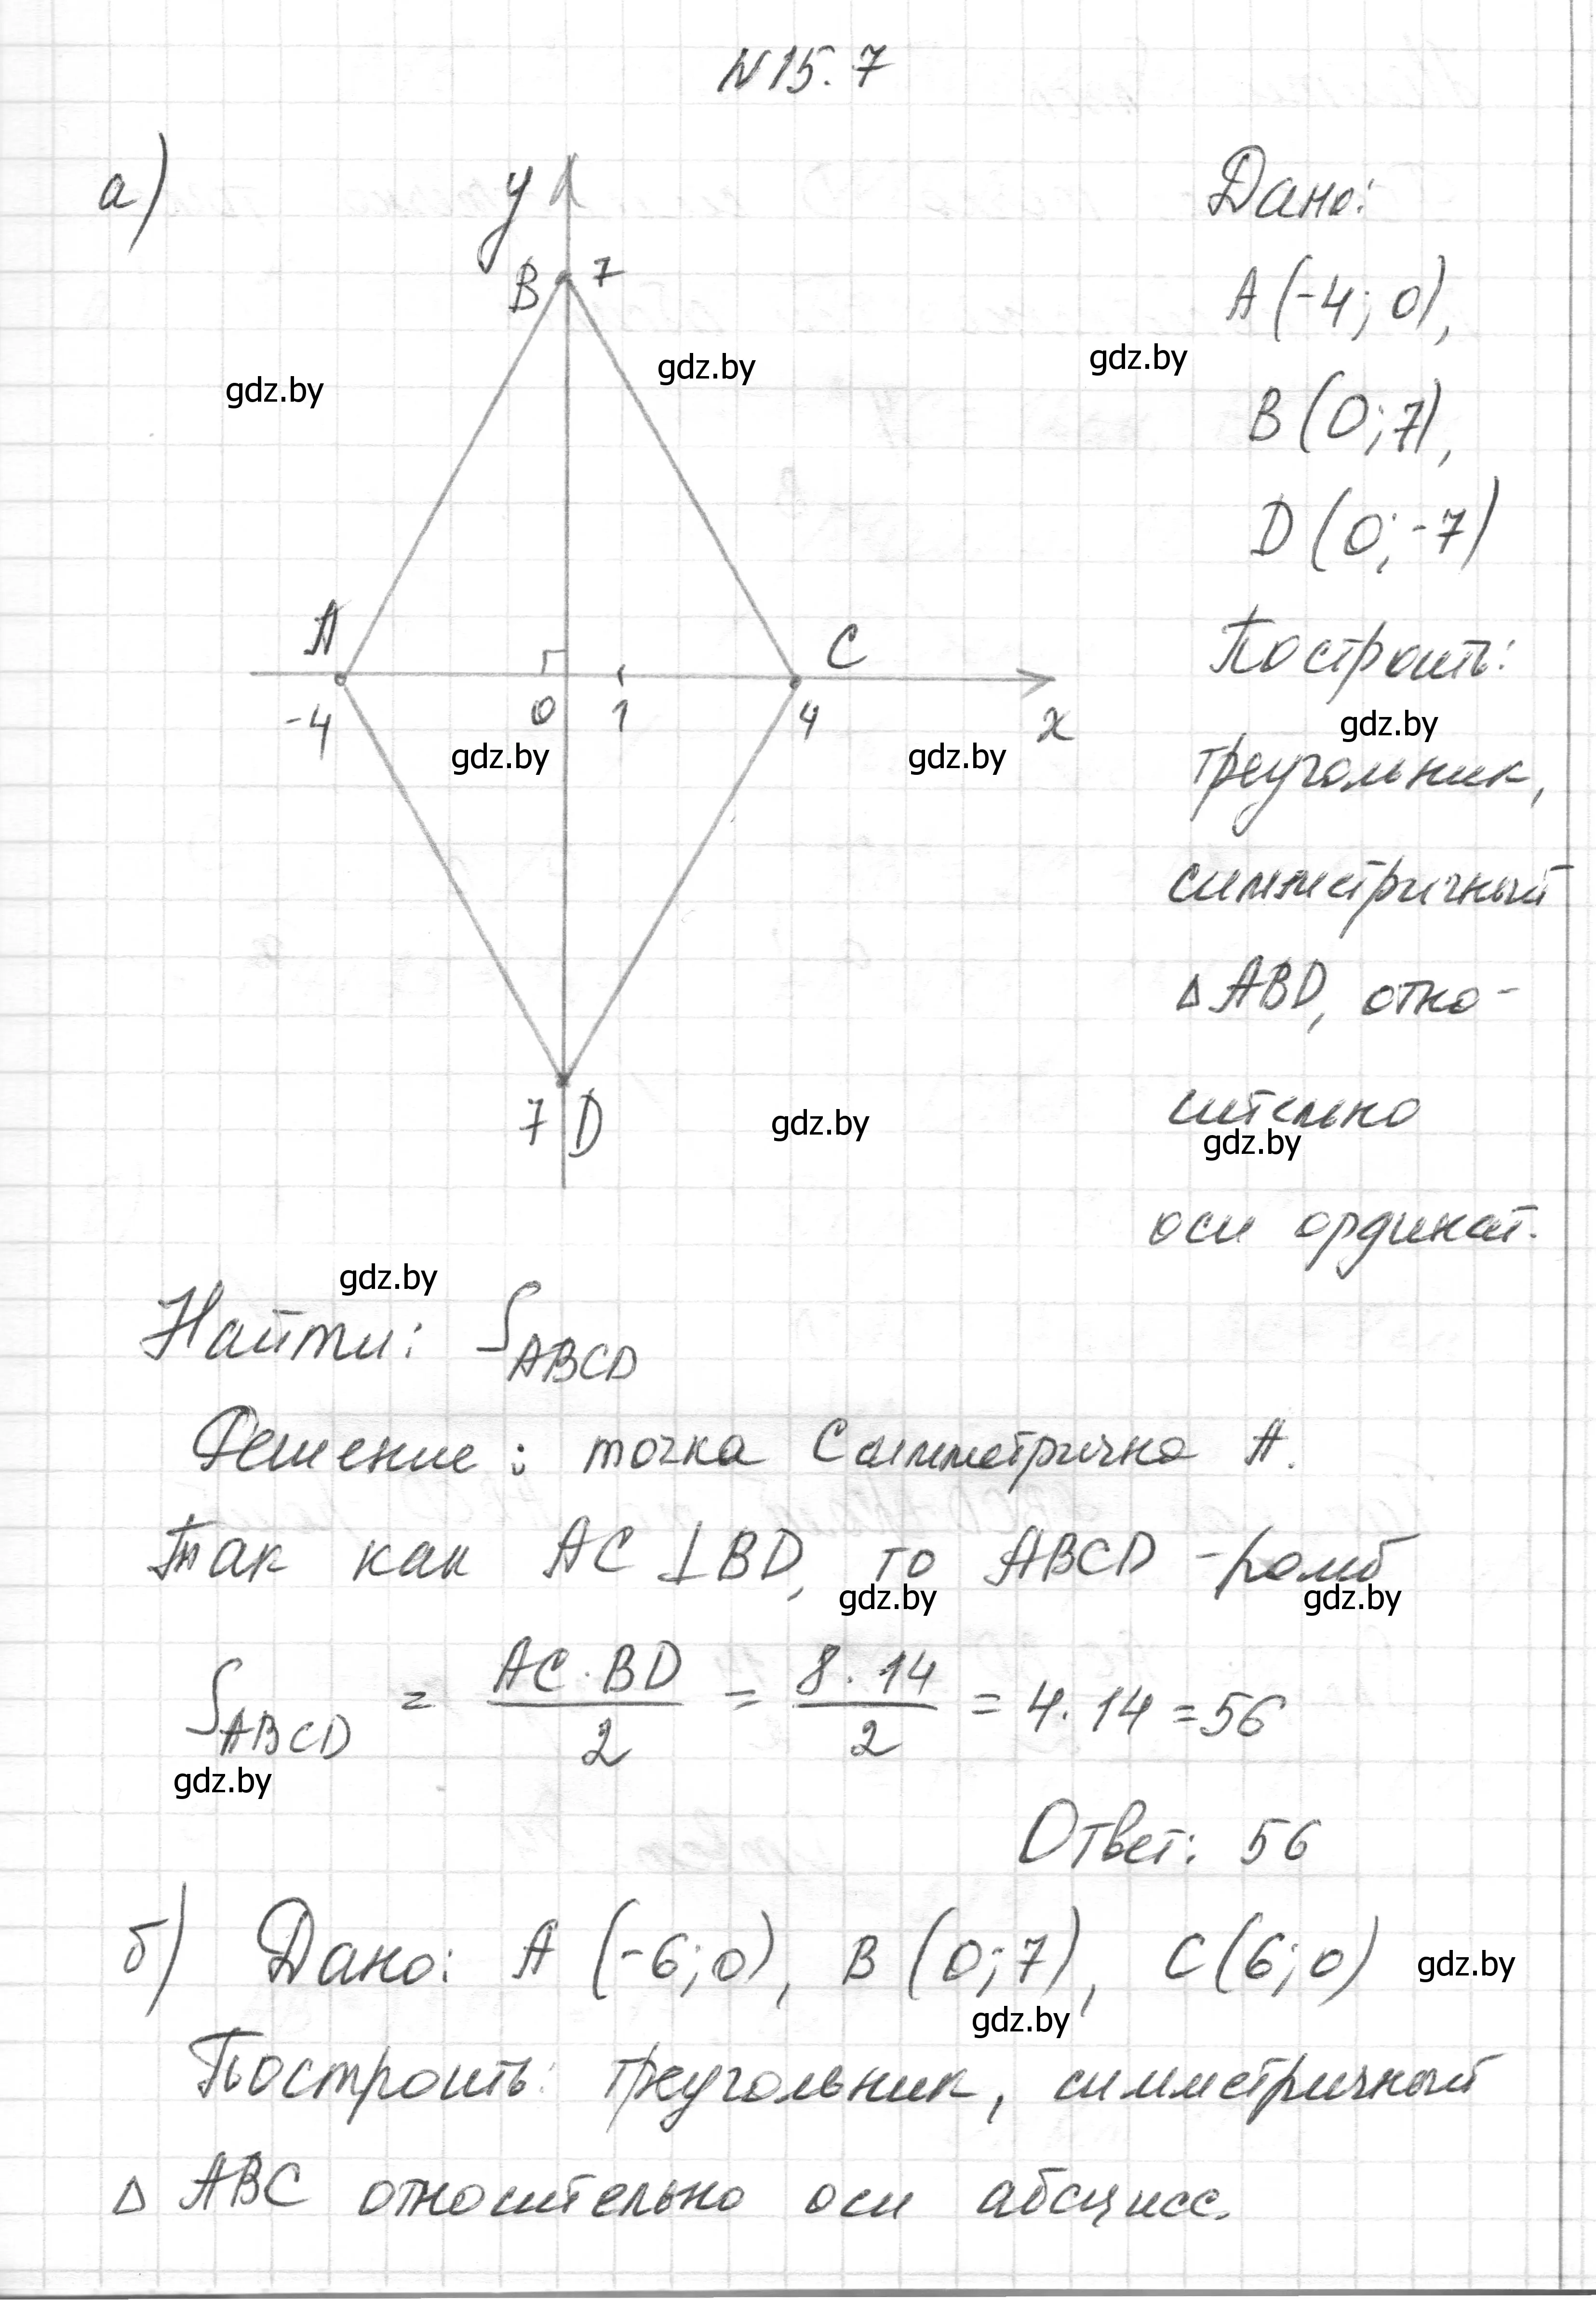 N 15.7
а)
y
B 7
A
C
-4
0
1
4
x
7 D
Дано:
A (-4; 0),
B (0; 7),
D (0; -7)
Построить:
треугольник,
симметричный
Δ ABD, отно-
сительно
оси ординат.
Найти: S ABCD
Решение: точка C симметрична A.
Так как AC ⊥ BD, то ABCD - ромб
S ABCD = AC · BD / 2 = 8 · 14 / 2 = 4 · 14 = 56
Ответ: 56
б) Дано: A (-6; 0), B (0; 7), C (6; 0)
Построить: треугольник, симметричный
Δ ABC относительно оси абсцисс.
gdz.by
gdz.by
gdz.by
gdz.by
gdz.by
gdz.by
gdz.by
gdz.by
gdz.by
gdz.by
gdz.by
gdz.by
gdz.by
gdz.by